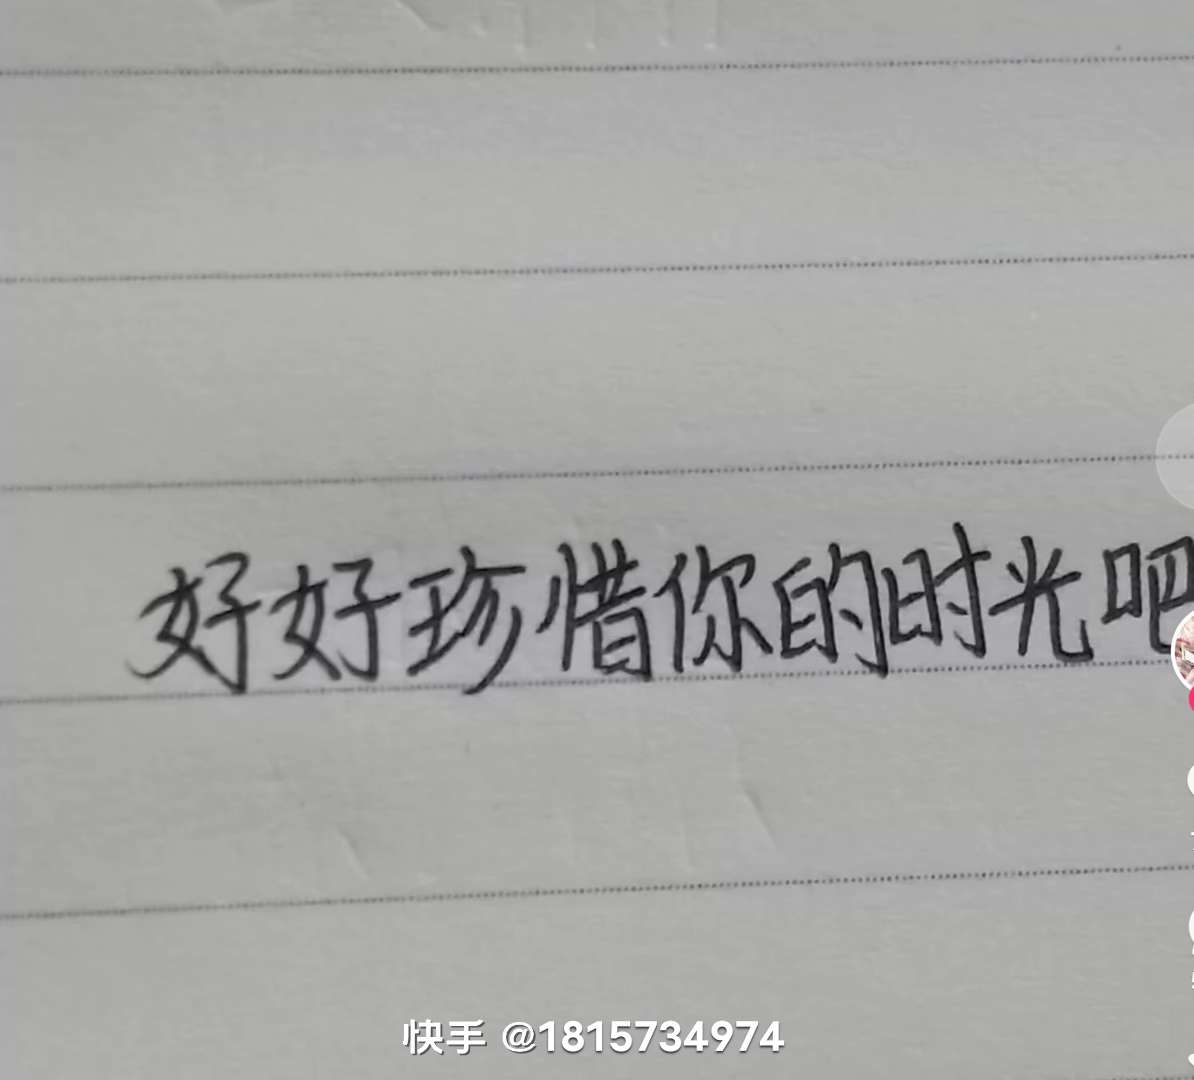 好好珍惜你的时光吧
快手 @1815734974